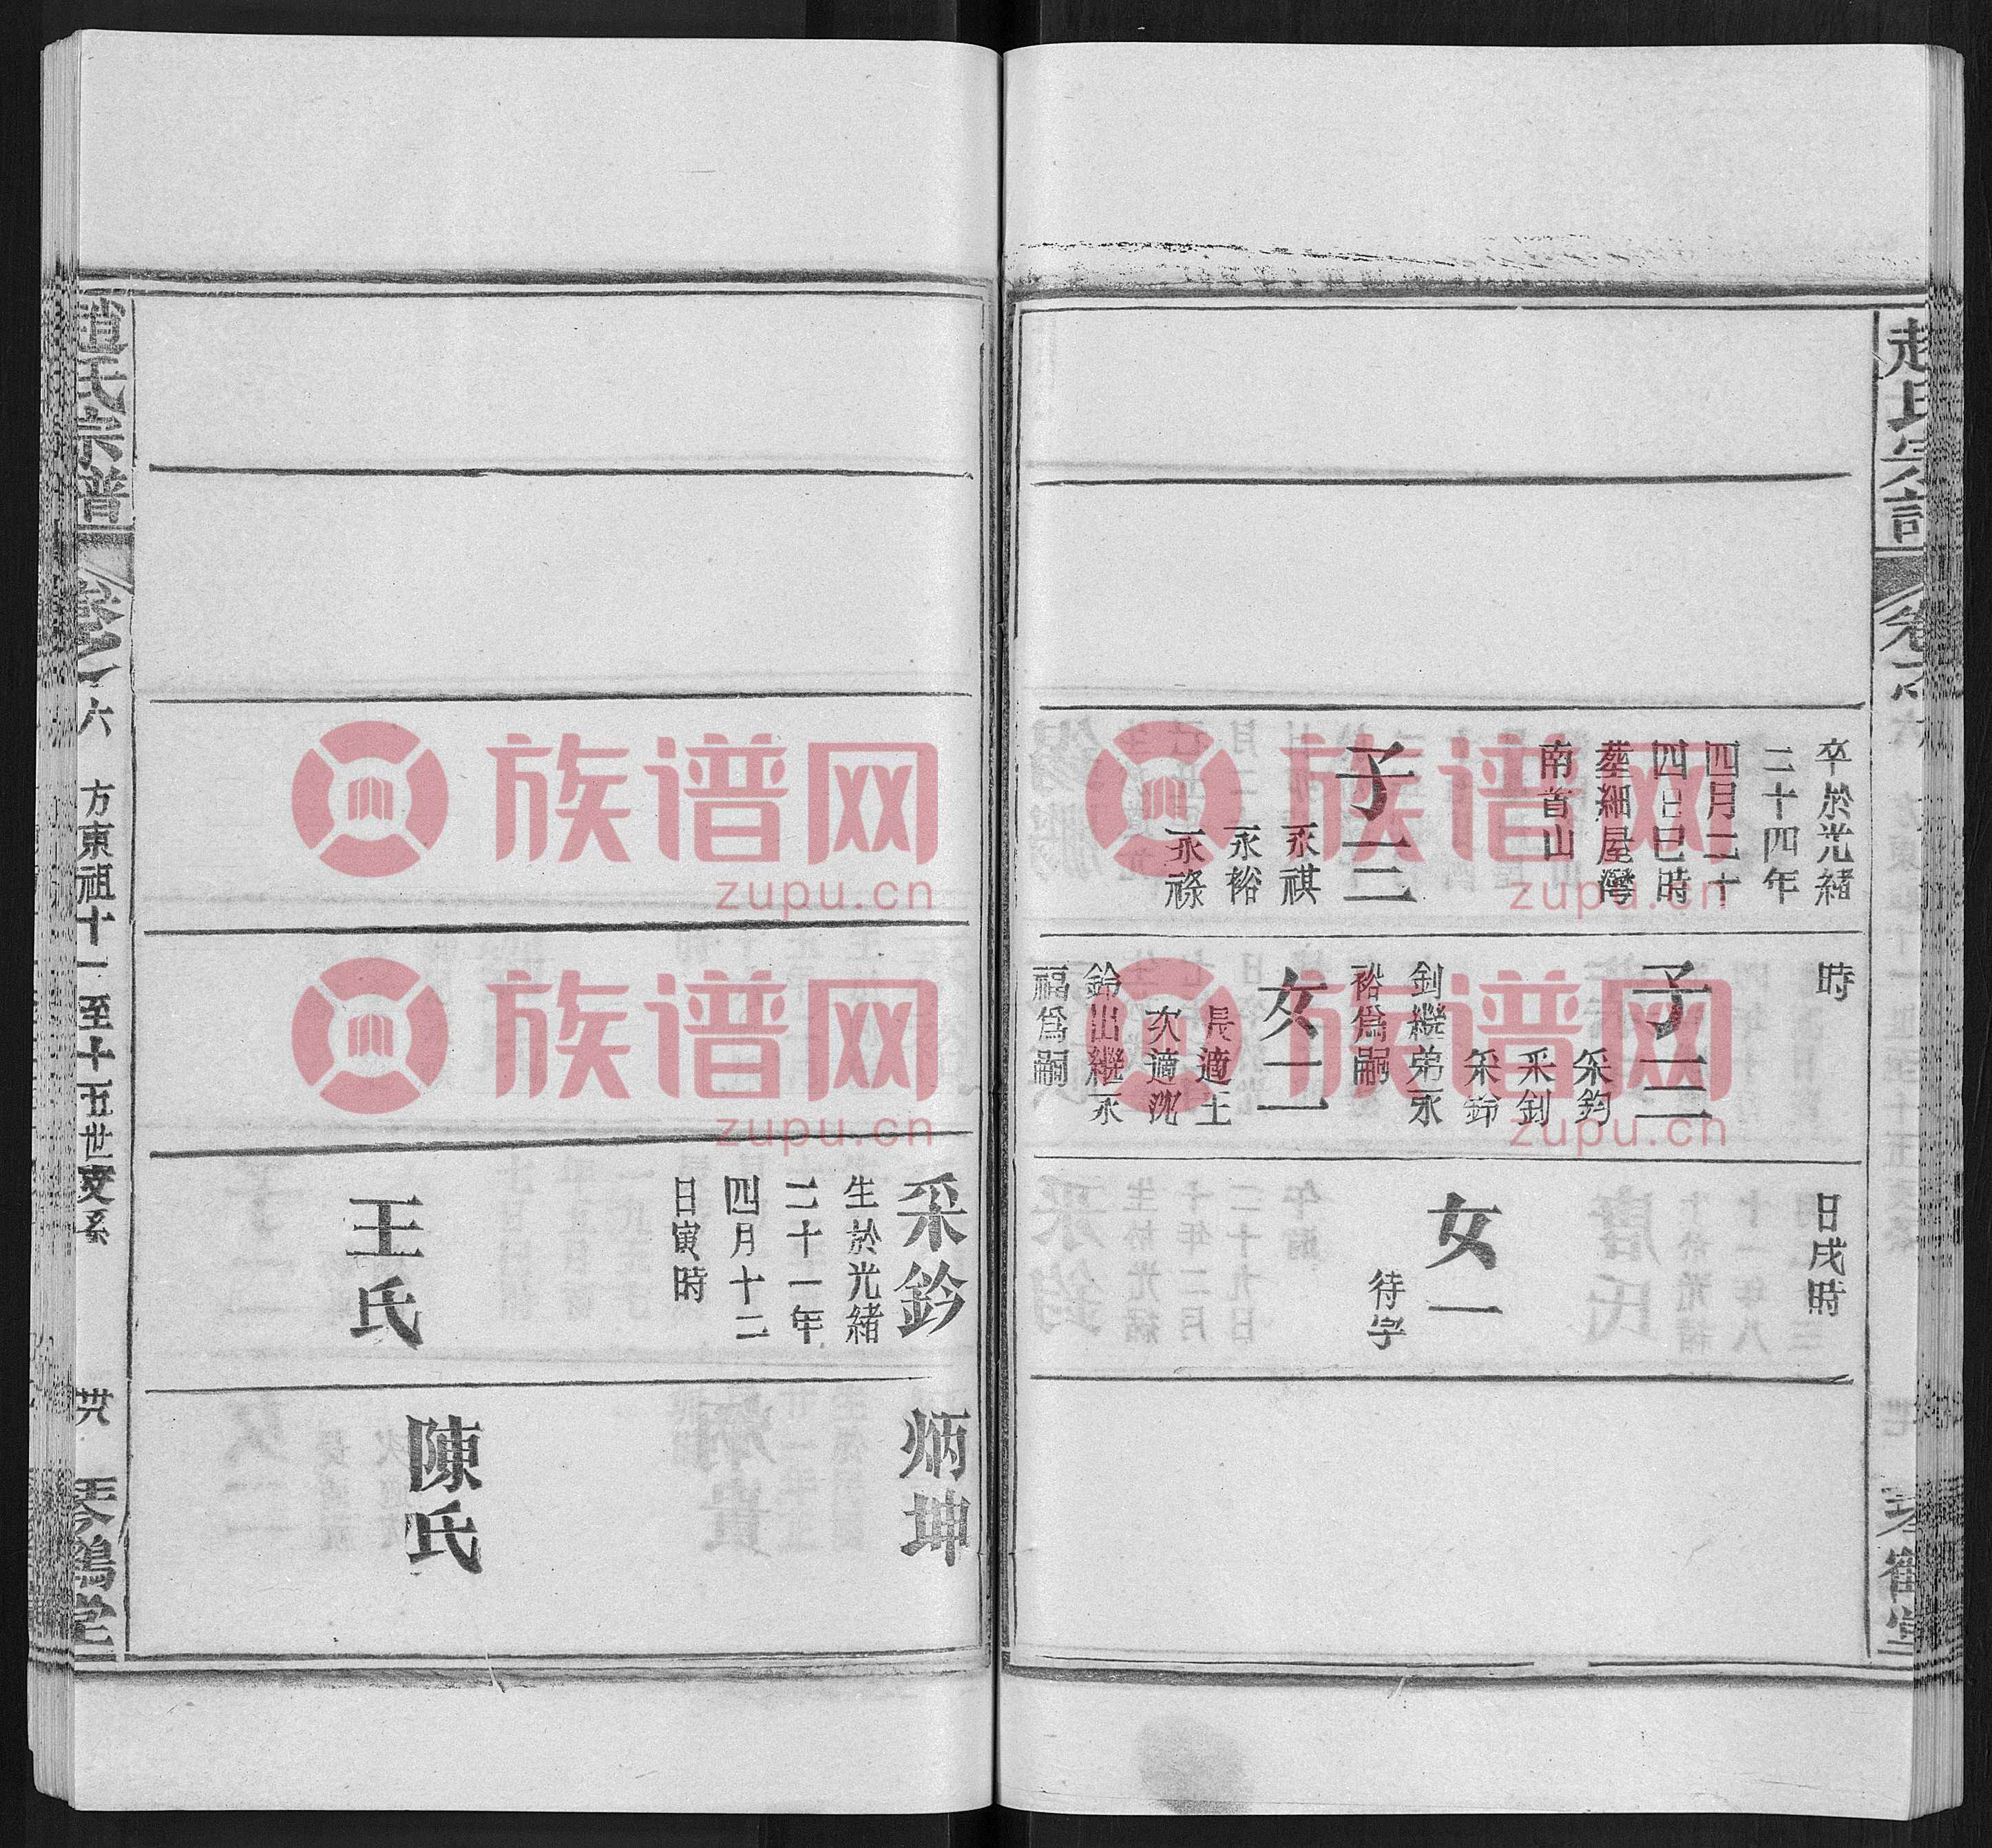 趙氏宗譜
卷六
卒於光緒
二十四年
四月二十
四日巳時
葬細屋灣
南首山
子三
永祺
永裕
永祿
時
子三
采鈞
采釗
采鈴
釗繼弟永
裕爲嗣
女二
長適王
次適沈
鈴出繼永
福爲嗣
日戌時
女一
待字
琴鶴堂
采鈐
生於光緒
二十一年
四月十二
日寅時
王氏
炳坤
陳氏
趙氏宗譜
卷六
方東祖十一至十五世支系
卅八
琴鶴堂
族谱网
zupu.cn
族谱网
zupu.cn
族谱网
zupu.cn
族谱网
zupu.cn